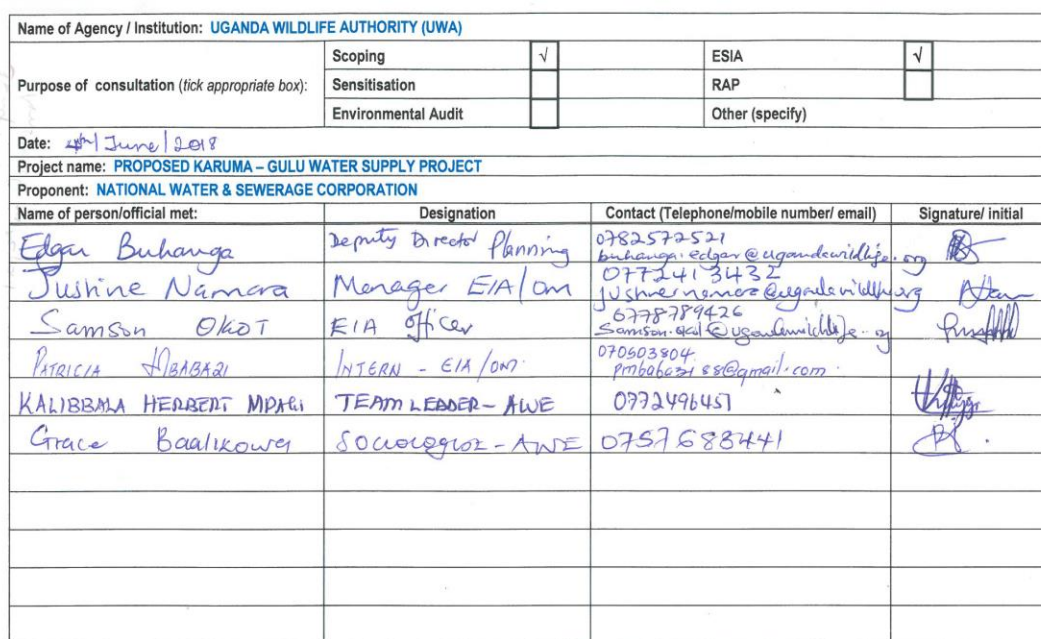 Name of Agency / Institution: UGANDA WILDLIFE AUTHORITY (UWA)
Purpose of consultation (tick appropriate box):
Scoping √ ESIA √
Sensitisation RAP
Environmental Audit Other (specify)
Date: 4th June 2018
Project name: PROPOSED KARUMA – GULU WATER SUPPLY PROJECT
Proponent: NATIONAL WATER & SEWERAGE CORPORATION
Name of person/official met: Designation Contact (Telephone/mobile number/ email) Signature/ initial
Edgar Buhanga Deputy Director Planning 0782572521
buhanga.edgar@ugandawildlife.org
Justine Namara Manager EIA/OM 0772413432
justine.namara@ugandawildlife.org
Samson OKOT EIA Officer 0778789426
@ugandawildlife.org
PATRICIA MBABAZI INTERN - EIA/OM 070503804
pmbabazi88@gmail.com
KALIBBALA HERBERT MPAGI TEAM LEADER - AWE 0772496451
Grace Baalikowa SOCIOLOGIST - AWE 0757683441